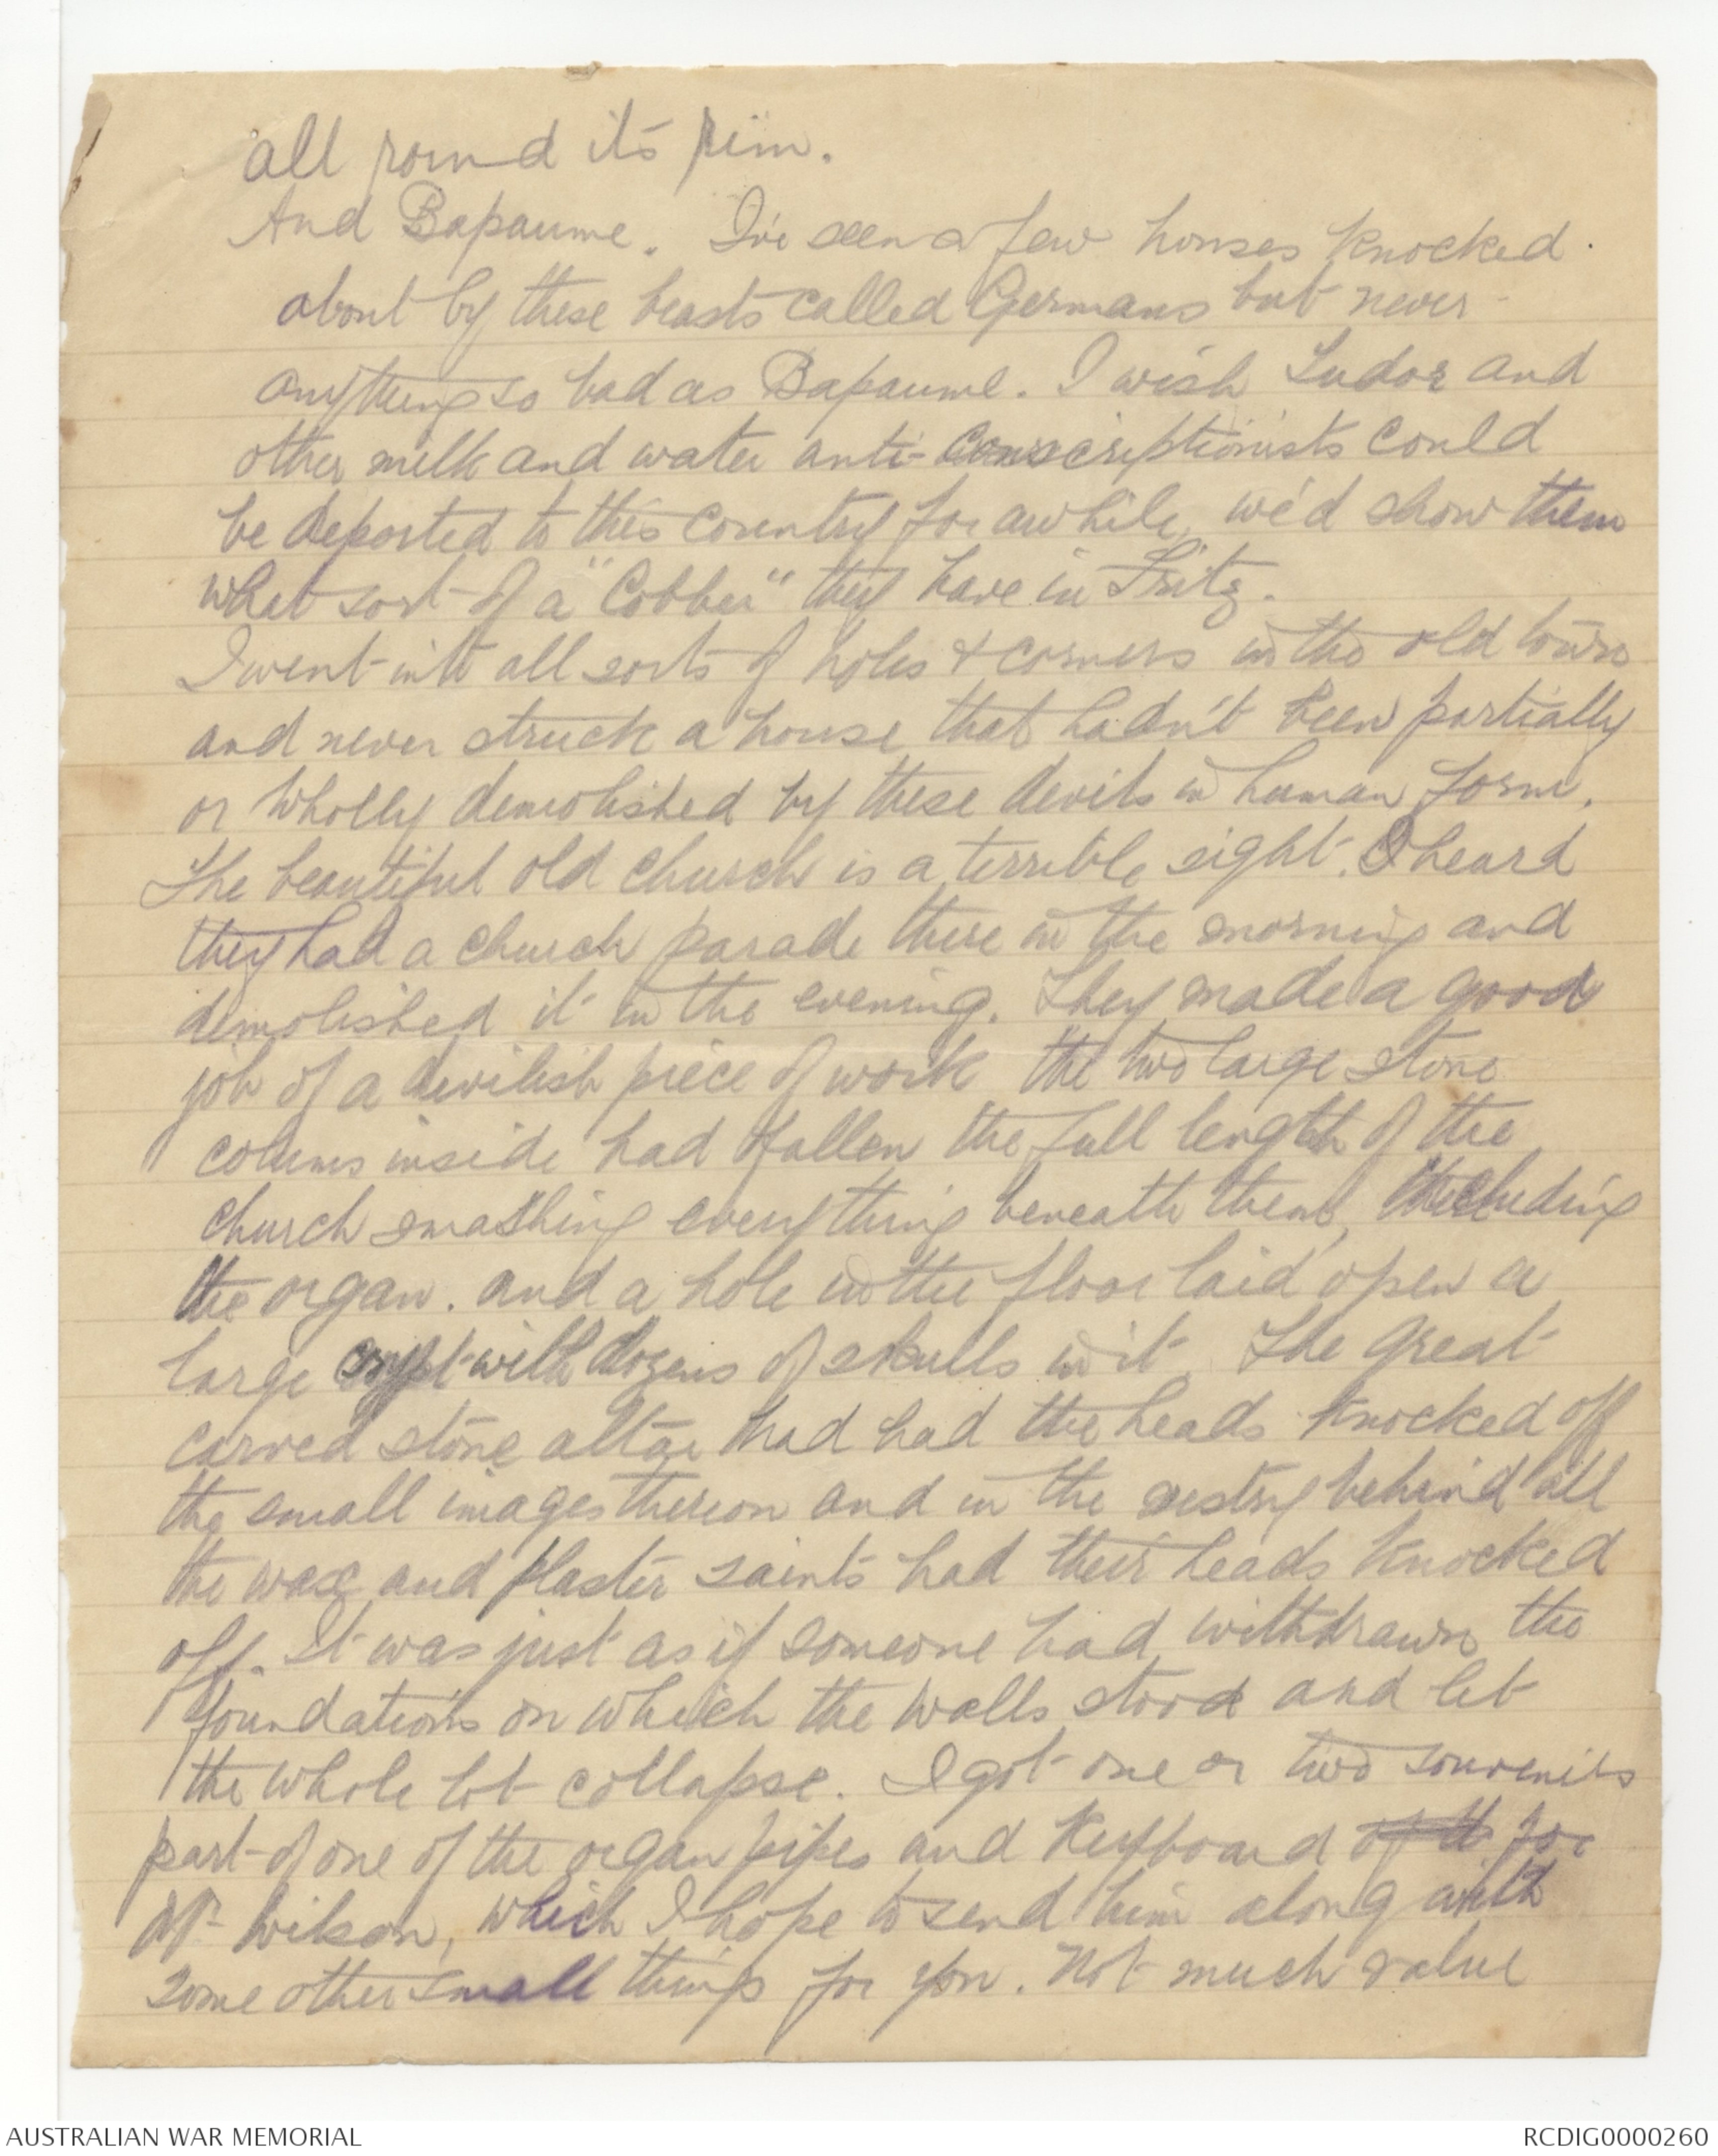 all round its rim.
And Bapaume. I've seen a few houses knocked
about by these beasts called Germans but never
anything so bad as Bapaume. I wish Tudor and
other milk and water anti-conscriptionists could
be deported to this country for awhile, we'd show them
what sort of a "Cobber" they have in Fritz.
I went into all sorts of holes & corners in the old town
and never struck a house that hadn't been partially
or wholly demolished by these devils in human form.
The beautiful old church is a terrible sight. I heard
they had a church parade there in the morning and
demolished it in the evening. They made a good
job of a devilish piece of work the two large stone
colums inside had fallen the full length of the
church smashing everything beneath them, including
the organ. and a hole in the floor laid open a
large crypt with dozens of skulls in it. The great
carved stone altar had had the heads knocked off
the small images thereon and in the vestry behind all
the wax and plaster saints had their heads knocked
off. It was just as if someone had withdrawn the
foundations on which the walls stood and let
the whole lot collapse. I got one or two souvenirs
part of one of the organ pipes and keyboard of th for
Mr Wilson, which I hope to send him along with
some other small things for you. Not much value
AUSTRALIAN WAR MEMORIAL
RCDIG0000260